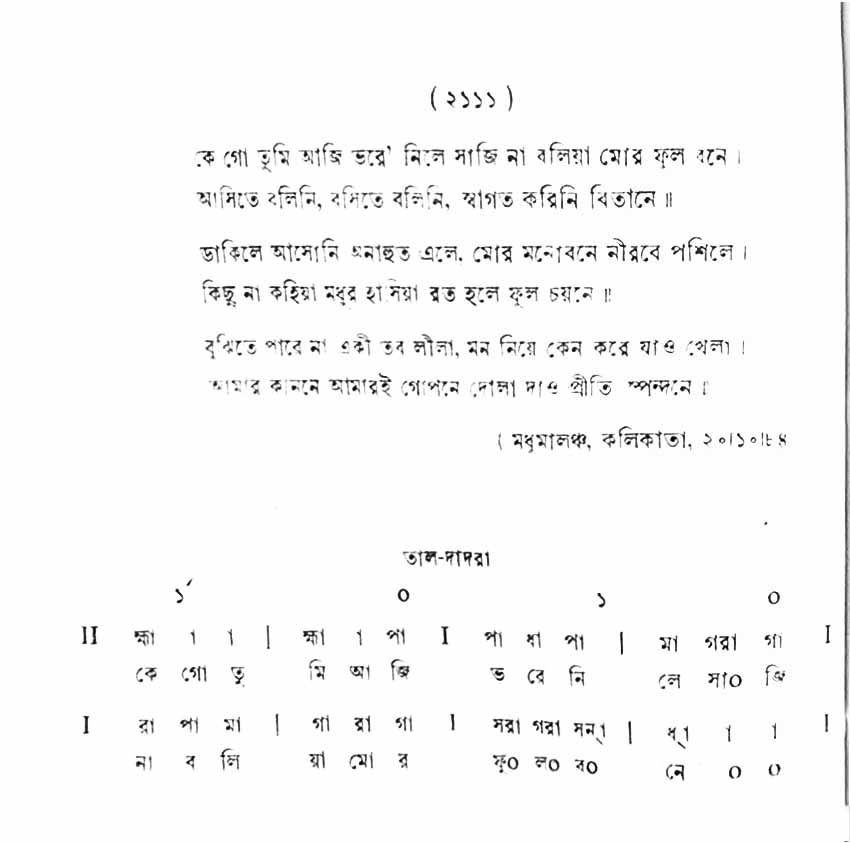 ( ২১১১ )
কে গো তুমি আজি ভরে' নিলে সাজি না বলিয়া মোর ফুল বনে ।
আসিতে বলিনি, বসিতে বলিনি, স্বাগত করিনি বিতানে ॥
ডাকিলে আসোনি অনাহুত এলে, মোর মনোবনে নীরবে পশিলে ।
কিছু না কহিয়া মধুর হাসিয়া রত হলে ফুল চয়নে ॥
বুঝিতে পারে না একী তব লীলা, মন নিয়ে কেন করে যাও খেলা ।
আমার কাননে আমারই গোপনে দোলা দাও প্রীতি স্পন্দনে ॥
( মধুমালঞ্চ, কলিকাতা, ২০।১০।৮৪
তাল-দাদরা
১´ ০ ১ ০
II হ্মা া া | হ্মা া পা I পা ধা পা | মা গরা গা I
কে গো তু মি আ জি ভ রে নি লে সা০ জি
I রা পা মা | গা রা গা I সরা গরা সন্া | ধ্া া া I
না ব লি য়া মো র ফু০ ল০ ব০ নে ০ ০